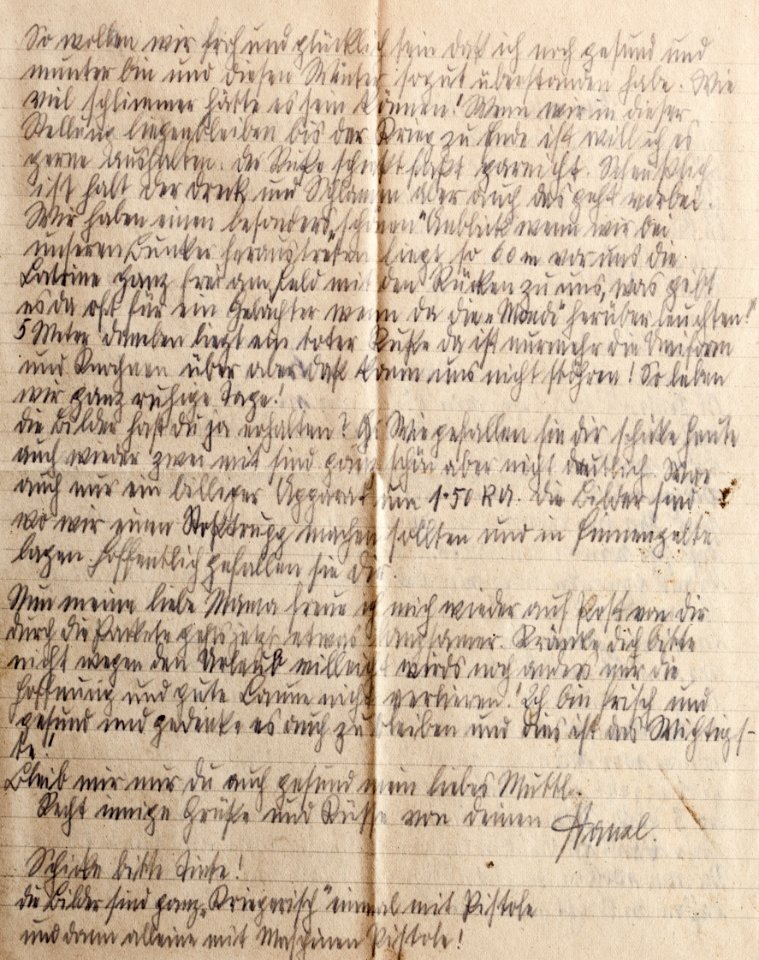 So wollen wir froh und glücklich sein daß ich noch gesund und
munter bin und diesen Winter so gut überstanden habe. Wie
viel schlimmer hätte es sein können! Wenn wir in dieser
Stellung liegenbleiben bis der Krieg zu Ende ist will ich es
gerne aushalten. Der Ruße schießt fast garnicht. Scheußlich
ist halt der Dreck und Schlamm aber auch das geht vorbei.
Wir haben einen besonders "schönen" Anblick wenn wir bei
unseren Bunker heraustreten liegt so 60 m vor uns die
Latrine ganz frei am Feld mit den Rücken zu uns, was gibt
es da oft für ein Gelächter wenn da die "Monde" herüber leuchten!
5 Meter daneben liegt ein toter Ruße da ist nurmehr die Uniform
und Knochen über aber daß kann uns nicht stöhren! So leben
wir ganz ruhige Tage!
Die Bilder hast du ja erhalten? Wie gefallen sie dir schicke heute
auch wieder zwei mit sind ganz schön aber nicht deutlich
auch nur ein billiger Apparat um 1.50 RM. Die Bilder sind
wo wir einen Stoßtrupp machen sollten und in
lagen. Hoffentlich gefallen sie dir.
Nun meine liebe Mama freue ich mich wieder auf Post von dir
durch die Packete gehts jetzt etwas langsamer. Kränke dich bitte
nicht wegen den Urlaub villeicht wirds noch anders nur die
Hoffnung und gute Laune nicht verlieren! Ich bin frisch und
gesund und gedenke es auch zu bleiben und dies ist das Wichtigs-
te!
Bleib mir nur du auch gesund mein liebes Muttl.
Recht innige Grüße und Küsse von deinen Hansl.
Schicke bitte Tinte!
die Bilder sind ganz "Kriegerisch" einmal mit Pistole
und dann alleine mit Maschinen Pistole!